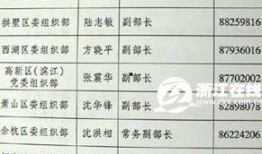 拱墅区委组织部 陆志敏 副部长 88259816
西湖区委组织部 方晓平 副部长 87936016
高新区(滨江)
党委组织部 张震华 副部长 87702002
萧山区委组织部 沈华锋 副部长 82898078
余杭区委组织部 沈洪相 常务副部长 86224206
浙江在线